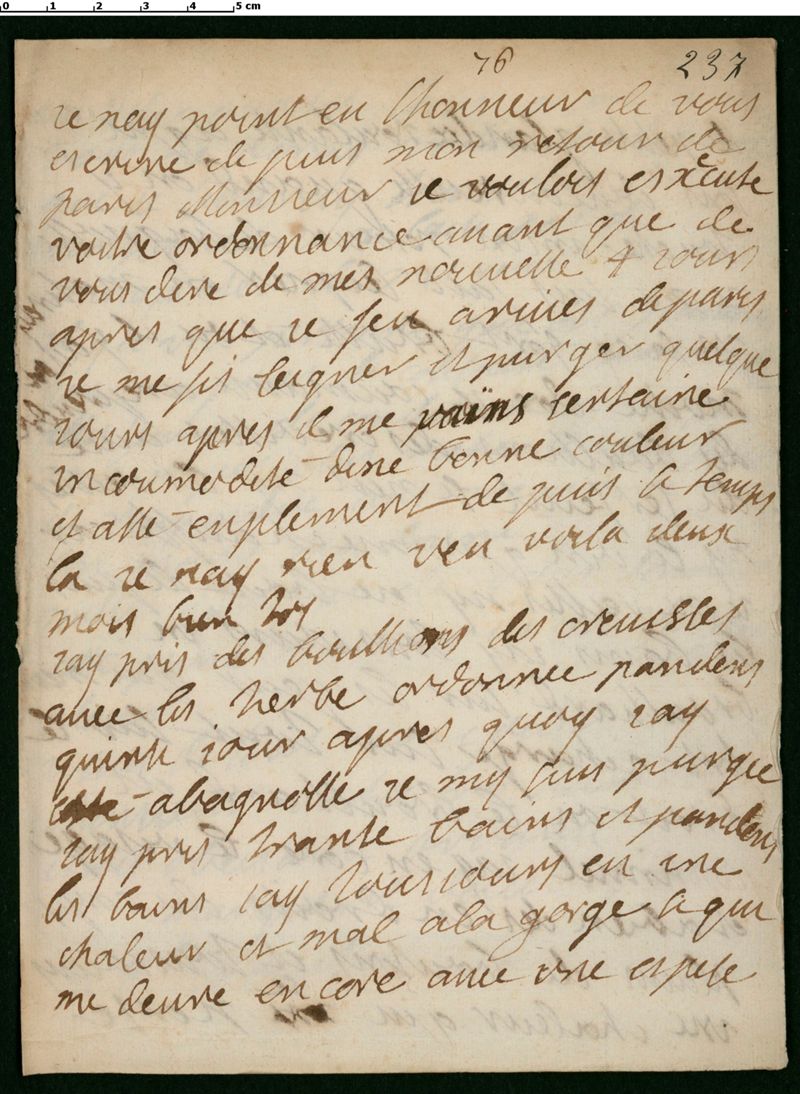 0 1 2 3 4 5 cm
76
237
ie nay point eu lhonneur de vous
escrire de puis mon retour de
paris Monsieur ie voulois esxecute
vostre ordonnance avant que de
vous dire de mes nouvelle 4 iours
apres que ie feu arives de paris
ie me fis segner et purger quelque
iours apres il me vains sertaine
incoumodite dune bonne couleur
et asse enplement de puis le temps
la ie nay rien veu voila deux
mois bien tos
iay pris des boullions des crevisses
avec les herbe ordonnee pandens
quinse iour apres quoy iay
este abagnolle ie my suis purgee
iay pris trante bains et pandens
les bains iay tousiours eu une
chaleur et mal a la gorge ce qui
me deure encore avec une espese